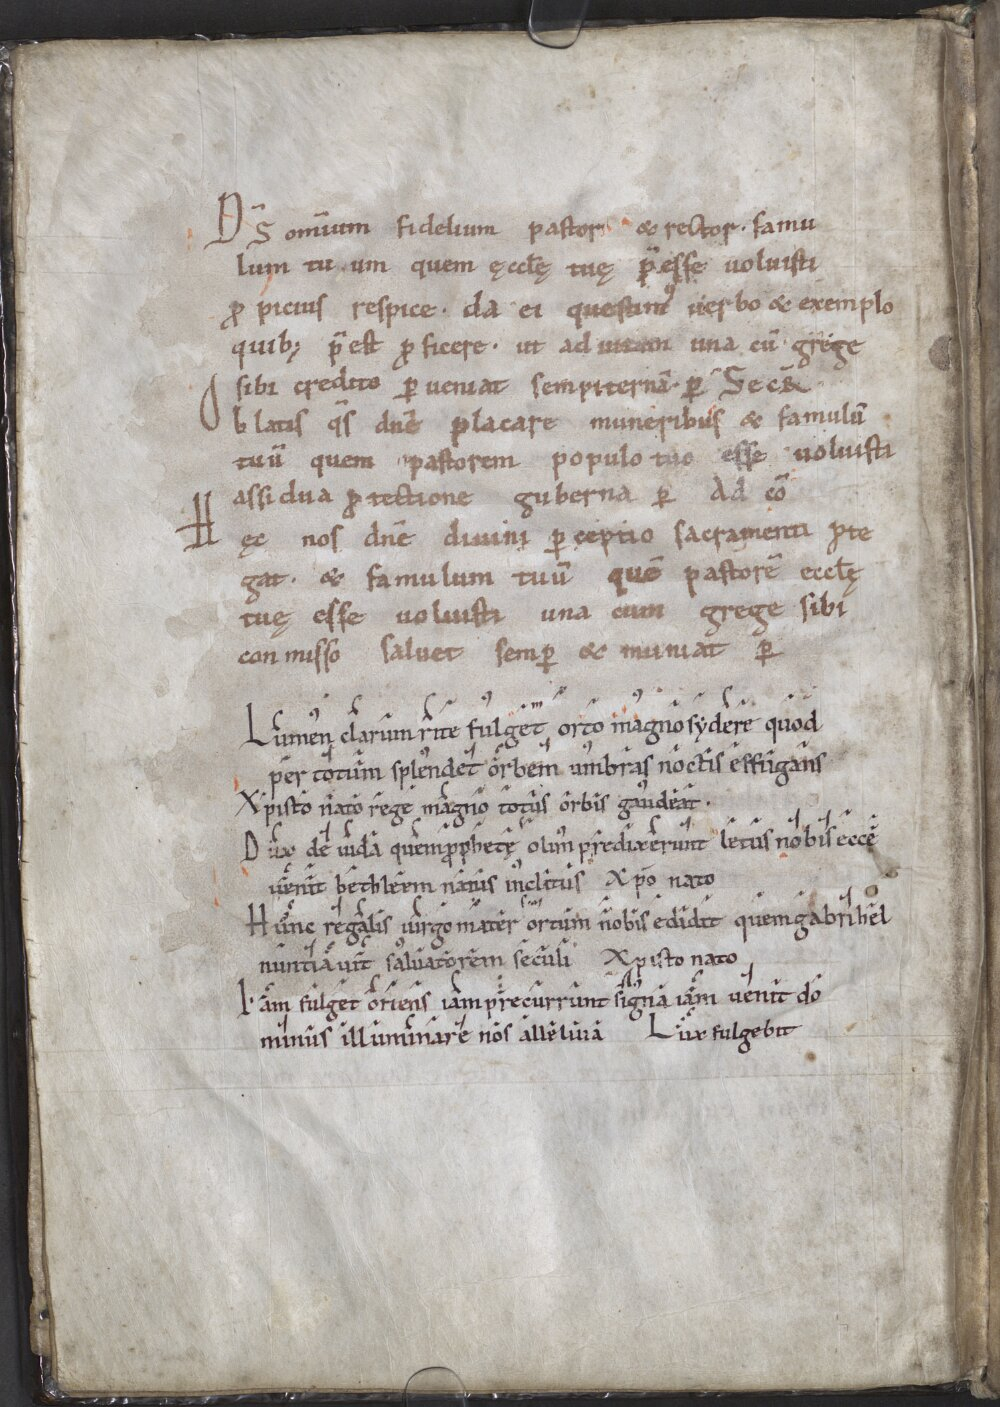 D̄S om̄ium fidelium pastor & rector. famu
lum tuum quem ęccłę tuę p̄esse uoluisti
ꝓpicius respice. da ei quesumꝰ uerbo & exemplo
quibꝫ p̄est ꝓficere. ut ad uitam una cū grege
sibi credito ꝑueniat sempiternā. ꝑ Secꝶ
Oblatis q̄s dn̄e placare muneribus & famulū
tuū quem pastorem populo tuo esse uoluisti
assidua ꝓtectione guberna ꝑ Ad cō
Hęc nos dn̄e diuini ꝑceptio sacramenti ꝓte
gat. & famulum tuū quē pastorē eccłę
tuę esse uoluisti una cum grege sibi
conmisso saluet semꝑ & muniat ꝑ
Lumen clarum rite fulget orto magno sydere quod
per totum splendet orbem umbras noctis effugans
Xpisto nato rege magno totus orbis gaudeat.
Dux de iuda quem prophetę olim predixerunt letus nobis ecce
uenit bethleem natus inclitus Xp̄o nato
Hunc regalis uirgo mater ortum nobis edidit quem gabrihel
nuntiauit saluatorem seculi Xpisto nato
Iam fulget oriens iam precurrunt signa iam uenit do
minus illuminare nos alleluia Lux fulgebit